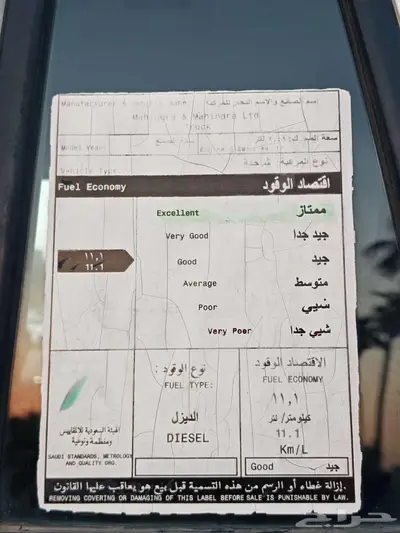 إسم الصانع والإسم التجاري للمركبة
Manufacturer
Mahindra & Mahindra Ltd
Truck
سعة المحرك
لتر
Model Year
سنة الصنع
Vehicle Type
نوع المركبة شاحنة
Fuel Economy اقتصاد الوقود
Excellent ممتاز
Very Good جيد جدا
Good جيد
١١,١
11.1
Average متوسط
Poor سيئ
Very Poor سيئ جدا
نوع الوقود :
FUEL TYPE:
الديزل
DIESEL
الاقتصاد الوقود
FUEL ECONOMY
١١,١
كيلومتر/ لتر
11.1
Km/L
Good جيد
الهيئة السعودية للمقاييس
SAUDI STANDARDS, METROLOGY
AND QUALITY ORG.
إزالة غطاء أو الرسم من هذه التسمية قبل بيع هو يعاقب عليها القانون.
REMOVING COVERING OR DAMAGING OF THIS LABEL BEFORE SALE IS PUNISHABLE BY LAW.
حراج